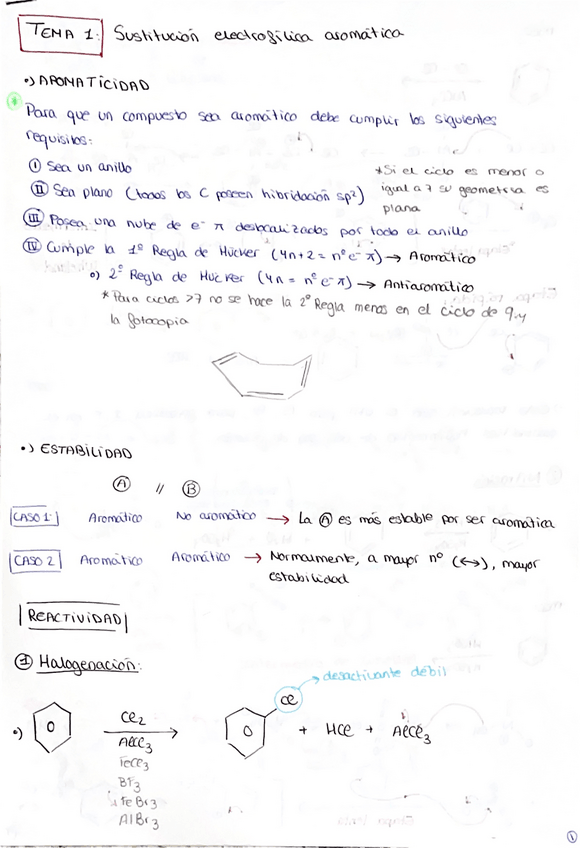 TEMA 1: Sustitución electrofílica aromática
•) AROMATICIDAD
* Para que un compuesto sea aromático debe cumplir los siguientes
requisitos:
I Sea un anillo
II Sea plano (todos los C poseen hibridación sp²)
*Si el ciclo es menor o
igual a 7 su geometría es
plana
III Posea una nube de e⁻ π deslocalizados por todo el anillo
IV Cumple la 1º Regla de Hücker (4n+2 = nº e⁻ π) → Aromático
o) 2º Regla de Hücker (4n = nº e⁻ π) → Antiaromático
* Para ciclos >7 no se hace la 2º Regla menos en el ciclo de 9 y
la fotocopia
•) ESTABILIDAD
A // B
CASO 1: Aromático No aromático → La A es más estable por ser aromática
CASO 2 Aromático Aromático → Normalmente, a mayor nº (↔), mayor
estabilidad
REACTIVIDAD
① Halogenación:
desactivante débil
•) Cl₂ Cl
AlCl₃ + HCl + AlCl₃
FeCl₃
BF₃
FeBr₃
AlBr₃
1